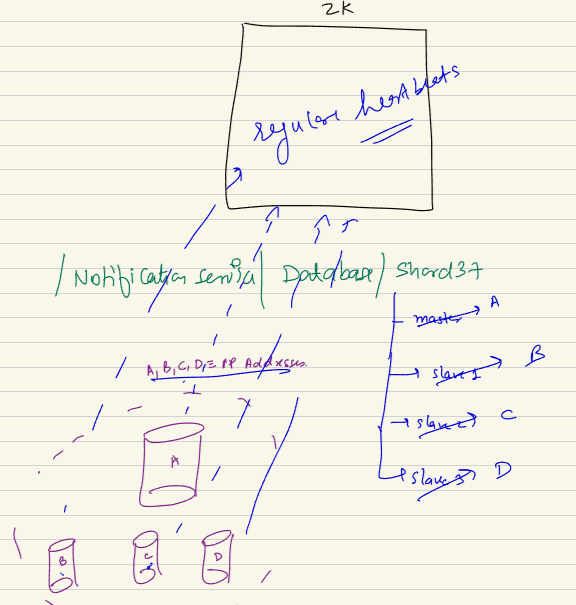 ZK
regular heartbeats
/Notification service/Database/Shard37
master → A
slave1 → B
slave2 → C
slave3 → D
A, B, C, D, = IP Addresses.
A
B
C
D